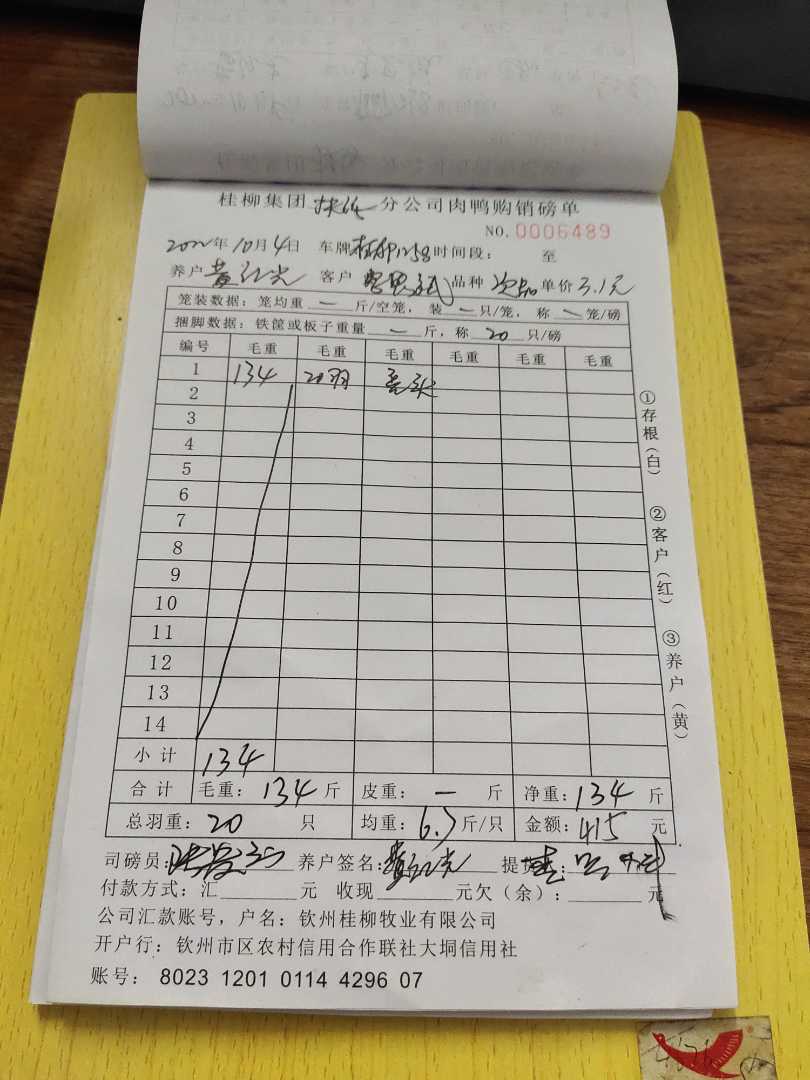 桂柳集团扶绥分公司肉鸭购销磅单
NO.0006489
2022年10月4日 车牌桂柳1258时间段: 至
养户黄红光 客户 品种次品单价3.1元
笼装数据: 笼均重 一 斤/空笼, 装 一 只/笼, 称 一 笼/磅
捆脚数据: 铁筐或板子重量 一 斤, 称 20 只/磅
编号 毛重 毛重 毛重 毛重 毛重 毛重
1 134 20羽
2
3
4
5
6
7
8
9
10
11
12
13
14
小计 134
合计 毛重: 134 斤 皮重: 一 斤 净重: 134 斤
总羽重: 20 只 均重: 6.7 斤/只 金额: 415 元
司磅员: 养户签名: 黄红光 提货
付款方式: 汇 元 收现 元欠(余): 元
公司汇款账号, 户名: 钦州桂柳牧业有限公司
开户行: 钦州市区农村信用合作联社大垌信用社
账号: 8023 1201 0114 4296 07
①存根(白)
②客户(红)
③养户(黄)